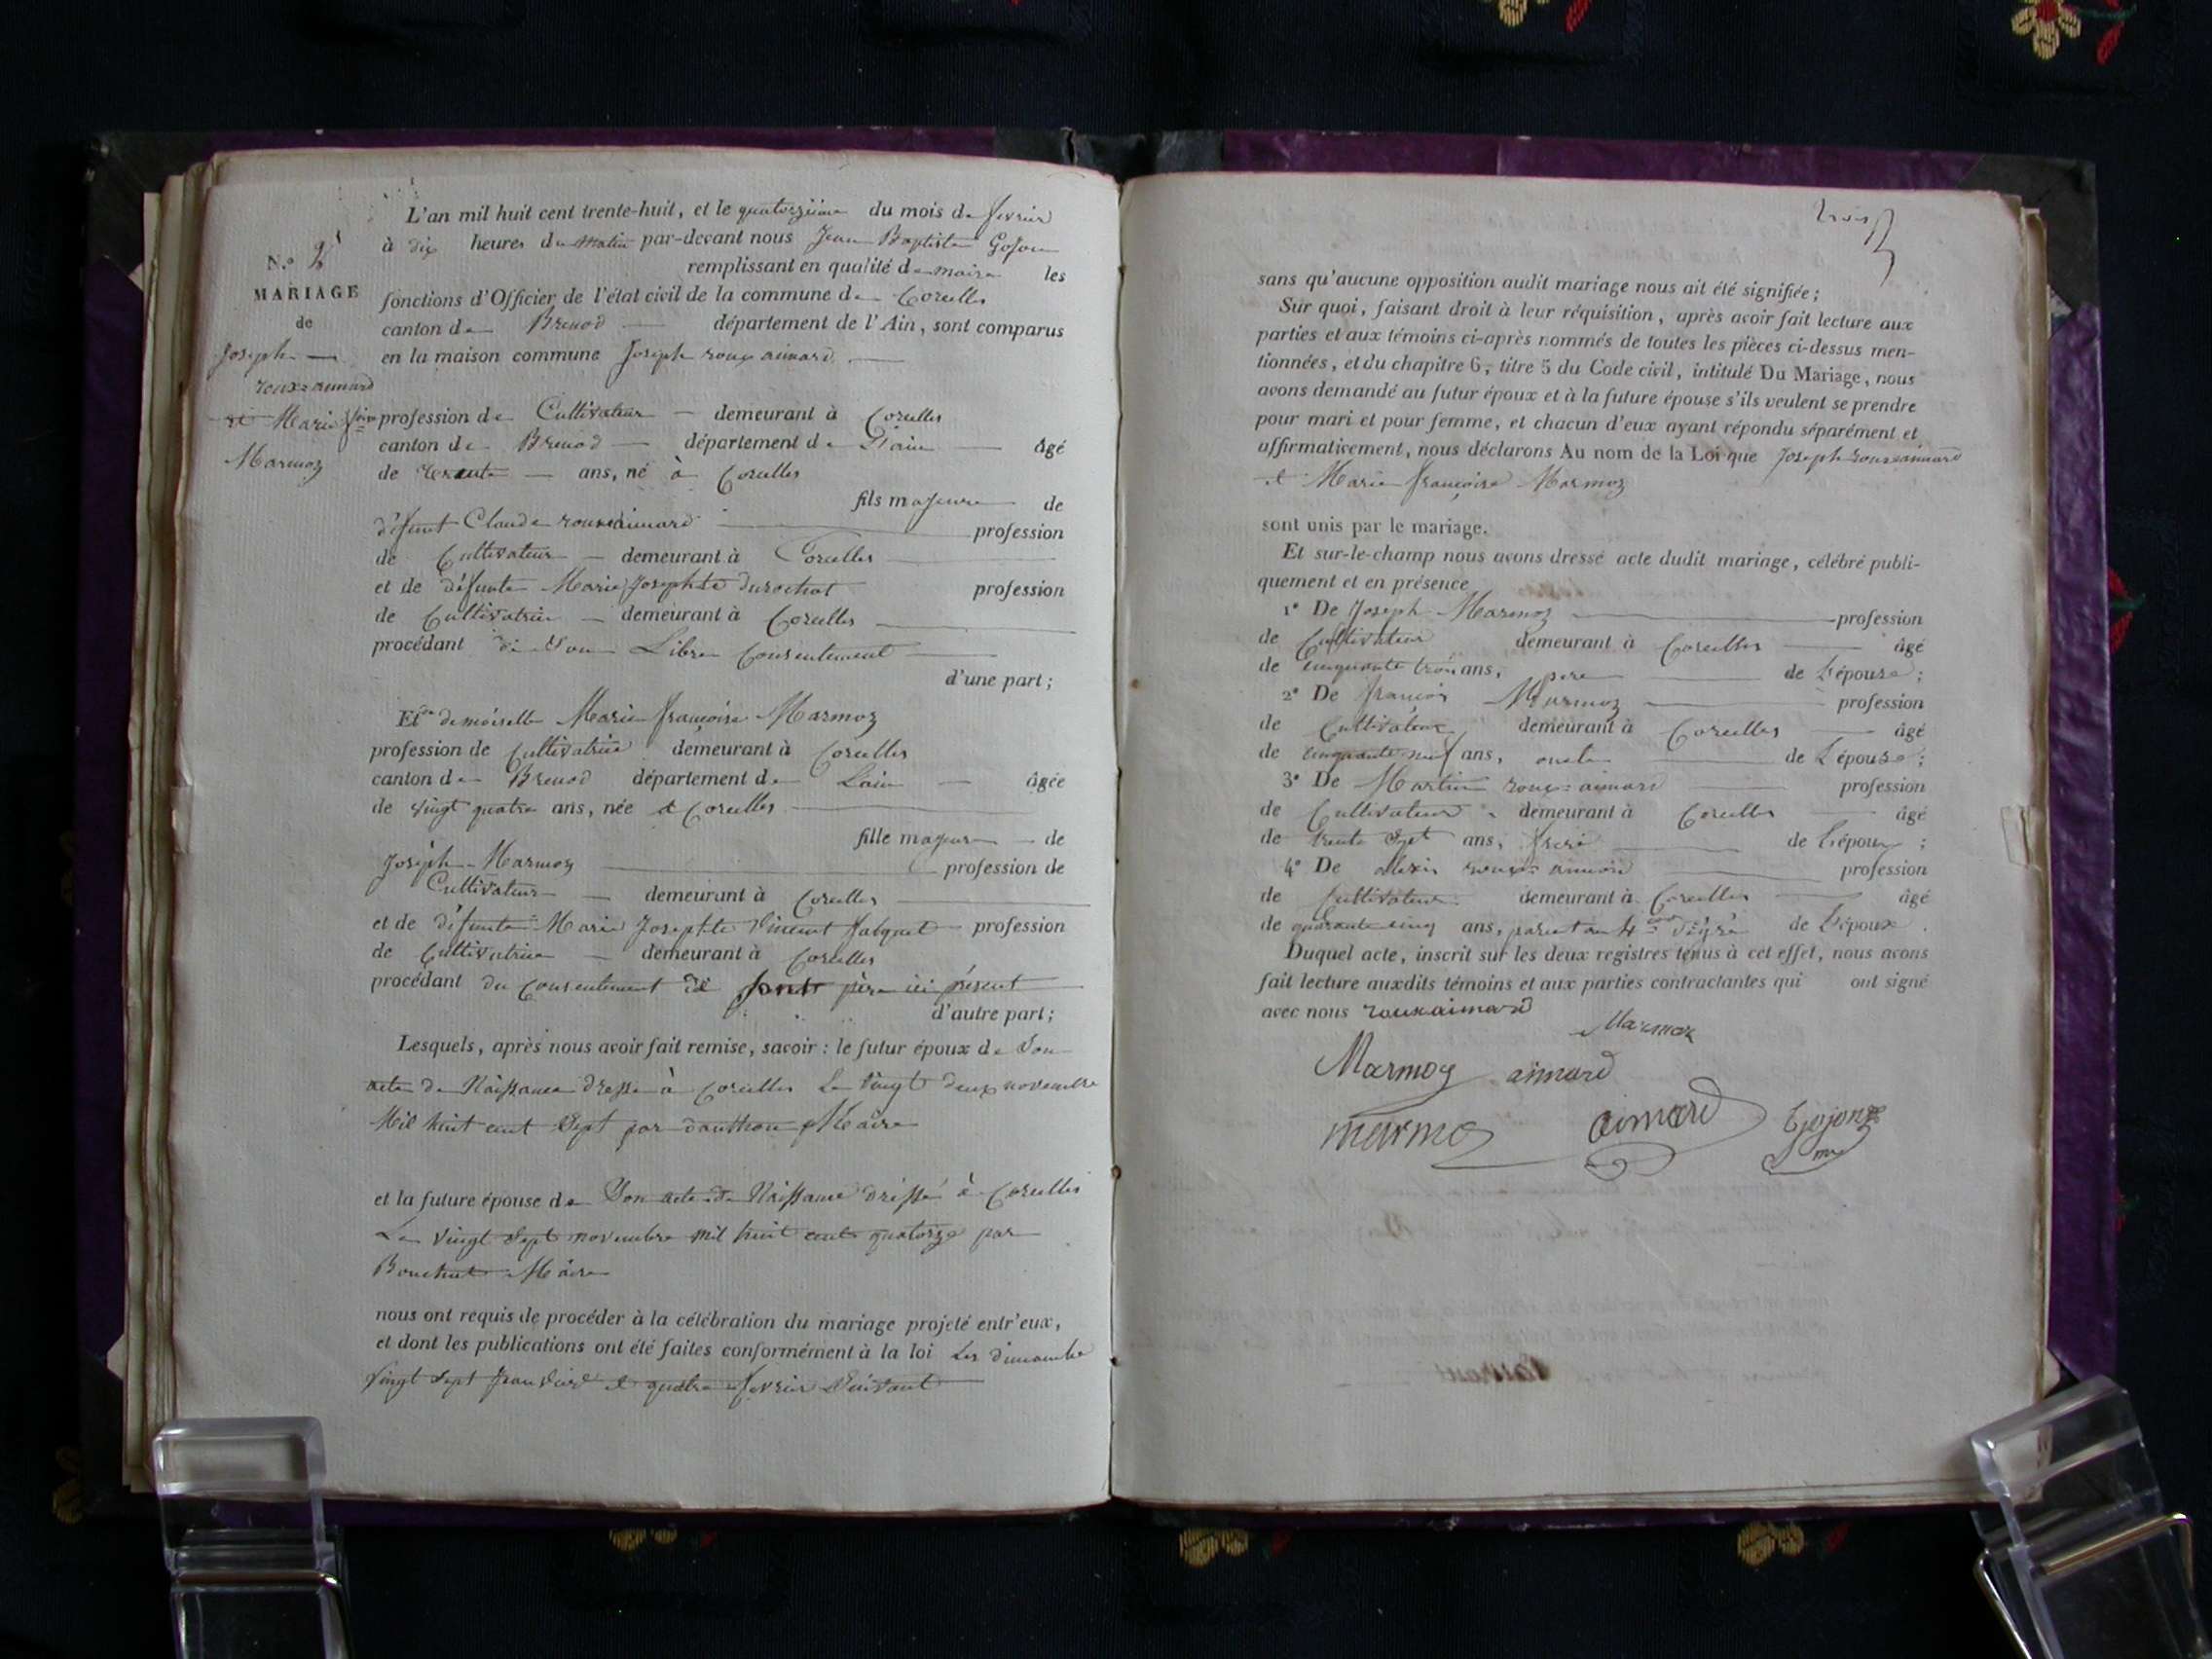 L'an mil huit cent trente-huit, et le quatorzième du mois de fevrier
à dix heures du matin par-devant nous Jean Baptiste Gojon
remplissant en qualité de maire les
fonctions d'Officier de l'état civil de la commune de Corcelles
canton de Brenod département de l'Ain, sont comparus
en la maison commune Joseph roux aimard
N.º 2
MARIAGE
de
Joseph
roux=aimard
et Marie
Marmoz
profession de Cultivateur demeurant à Corcelles
canton de Brenod département de L'ain âgé
de trente ans, né à Corcelles
fils majeure de
défunt Claude rouxaimard
profession
de Cultivateur demeurant à Corcelles
et de défunte Marie Josephte durochat profession
de Cultivatrice demeurant à Corcelles
procédant de Son Libre Consentement
d'une part;
Et demoiselle Marie françoise Marmoz
profession de Cultivatrice demeurant à Corcelles
canton de Brenod département de Lain âgée
de vingt quatre ans, née à Corcelles
fille majeure de
Joseph Marmoz profession de
Cultivateur demeurant à Corcelles
et de défunte Marie Josephte Vincent profession
de Cultivatrice demeurant à Corcelles
procédant du Consentement de père ici présent
d'autre part;
Lesquels, après nous avoir fait remise, savoir: le futur époux de Son
acte de Naissance dressé à Corcelles Le vingt deux novembre
Mil huit cent Sept par Maire
et la future épouse de Son acte de Naissance dréssé à Corcelles
Le vingt Sept novembre mil huit cent quatorze par
Bouchut Maire
nous ont requis de procéder à la célébration du mariage projeté entr'eux,
et dont les publications ont été faites conformément à la loi Les dimanche
vingt Sept Janvier et quatre fevrier Suivant
trois
sans qu'aucune opposition audit mariage nous ait été signifiée;
Sur quoi, faisant droit à leur réquisition, après avoir fait lecture aux
parties et aux témoins ci-après nommés de toutes les pièces ci-dessus men-
tionnées, et du chapitre 6, titre 5 du Code civil, intitulé Du Mariage, nous
avons demandé au futur époux et à la future épouse s'ils veulent se prendre
pour mari et pour femme, et chacun d'eux ayant répondu séparément et
affirmativement, nous déclarons Au nom de la Loi que Joseph rouxaimard
et Marie françoise Marmoz
sont unis par le mariage.
Et sur-le-champ nous avons dressé acte dudit mariage, célébré publi-
quement et en présence
1º De Joseph Marmoz profession
de Cultivateur demeurant à Corcelles âgé
de cinquante trois ans, père de L'épouse;
2º De françois Marmoz profession
de Cultivateur demeurant à Corcelles âgé
de cinquante neuf ans, oncle de L'épouse;
3º De Martin roux=aimard profession
de Cultivateur demeurant à Corcelles âgé
de trente Sept ans, frere de L'époux;
4º De alexis roux=aimard profession
de Cultivateur demeurant à Corcelles âgé
de quarante cinq ans, parent au 4 dégré de L'époux.
Duquel acte, inscrit sur les deux registres tenus à cet effet, nous avons
fait lecture auxdits témoins et aux parties contractantes qui ont signé
avec nous rouxaimard
Marmoz
Marmoz aimard
marmoz aimard Gojon